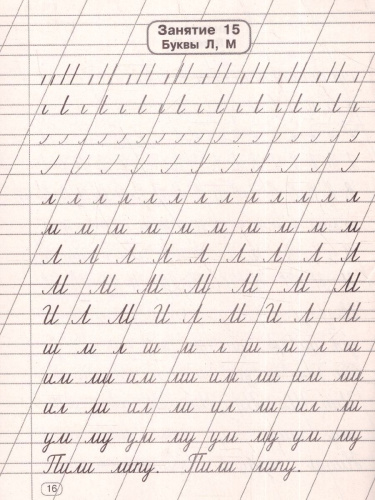 Занятие 15
Буквы Л, М
л л л л л л л л л л л л л л л
м м м м м м м м м м
Л Л Л Л Л Л Л Л Л Л Л
М М М М М М М
И Л М И Л М И Л М
ш м л ш м л ш м л ш
им ми им ми им ми им ми
ил ли ил ли ил ли ил ли
ум му ум му ум му ум му
Пили липу. Пили липу.
16